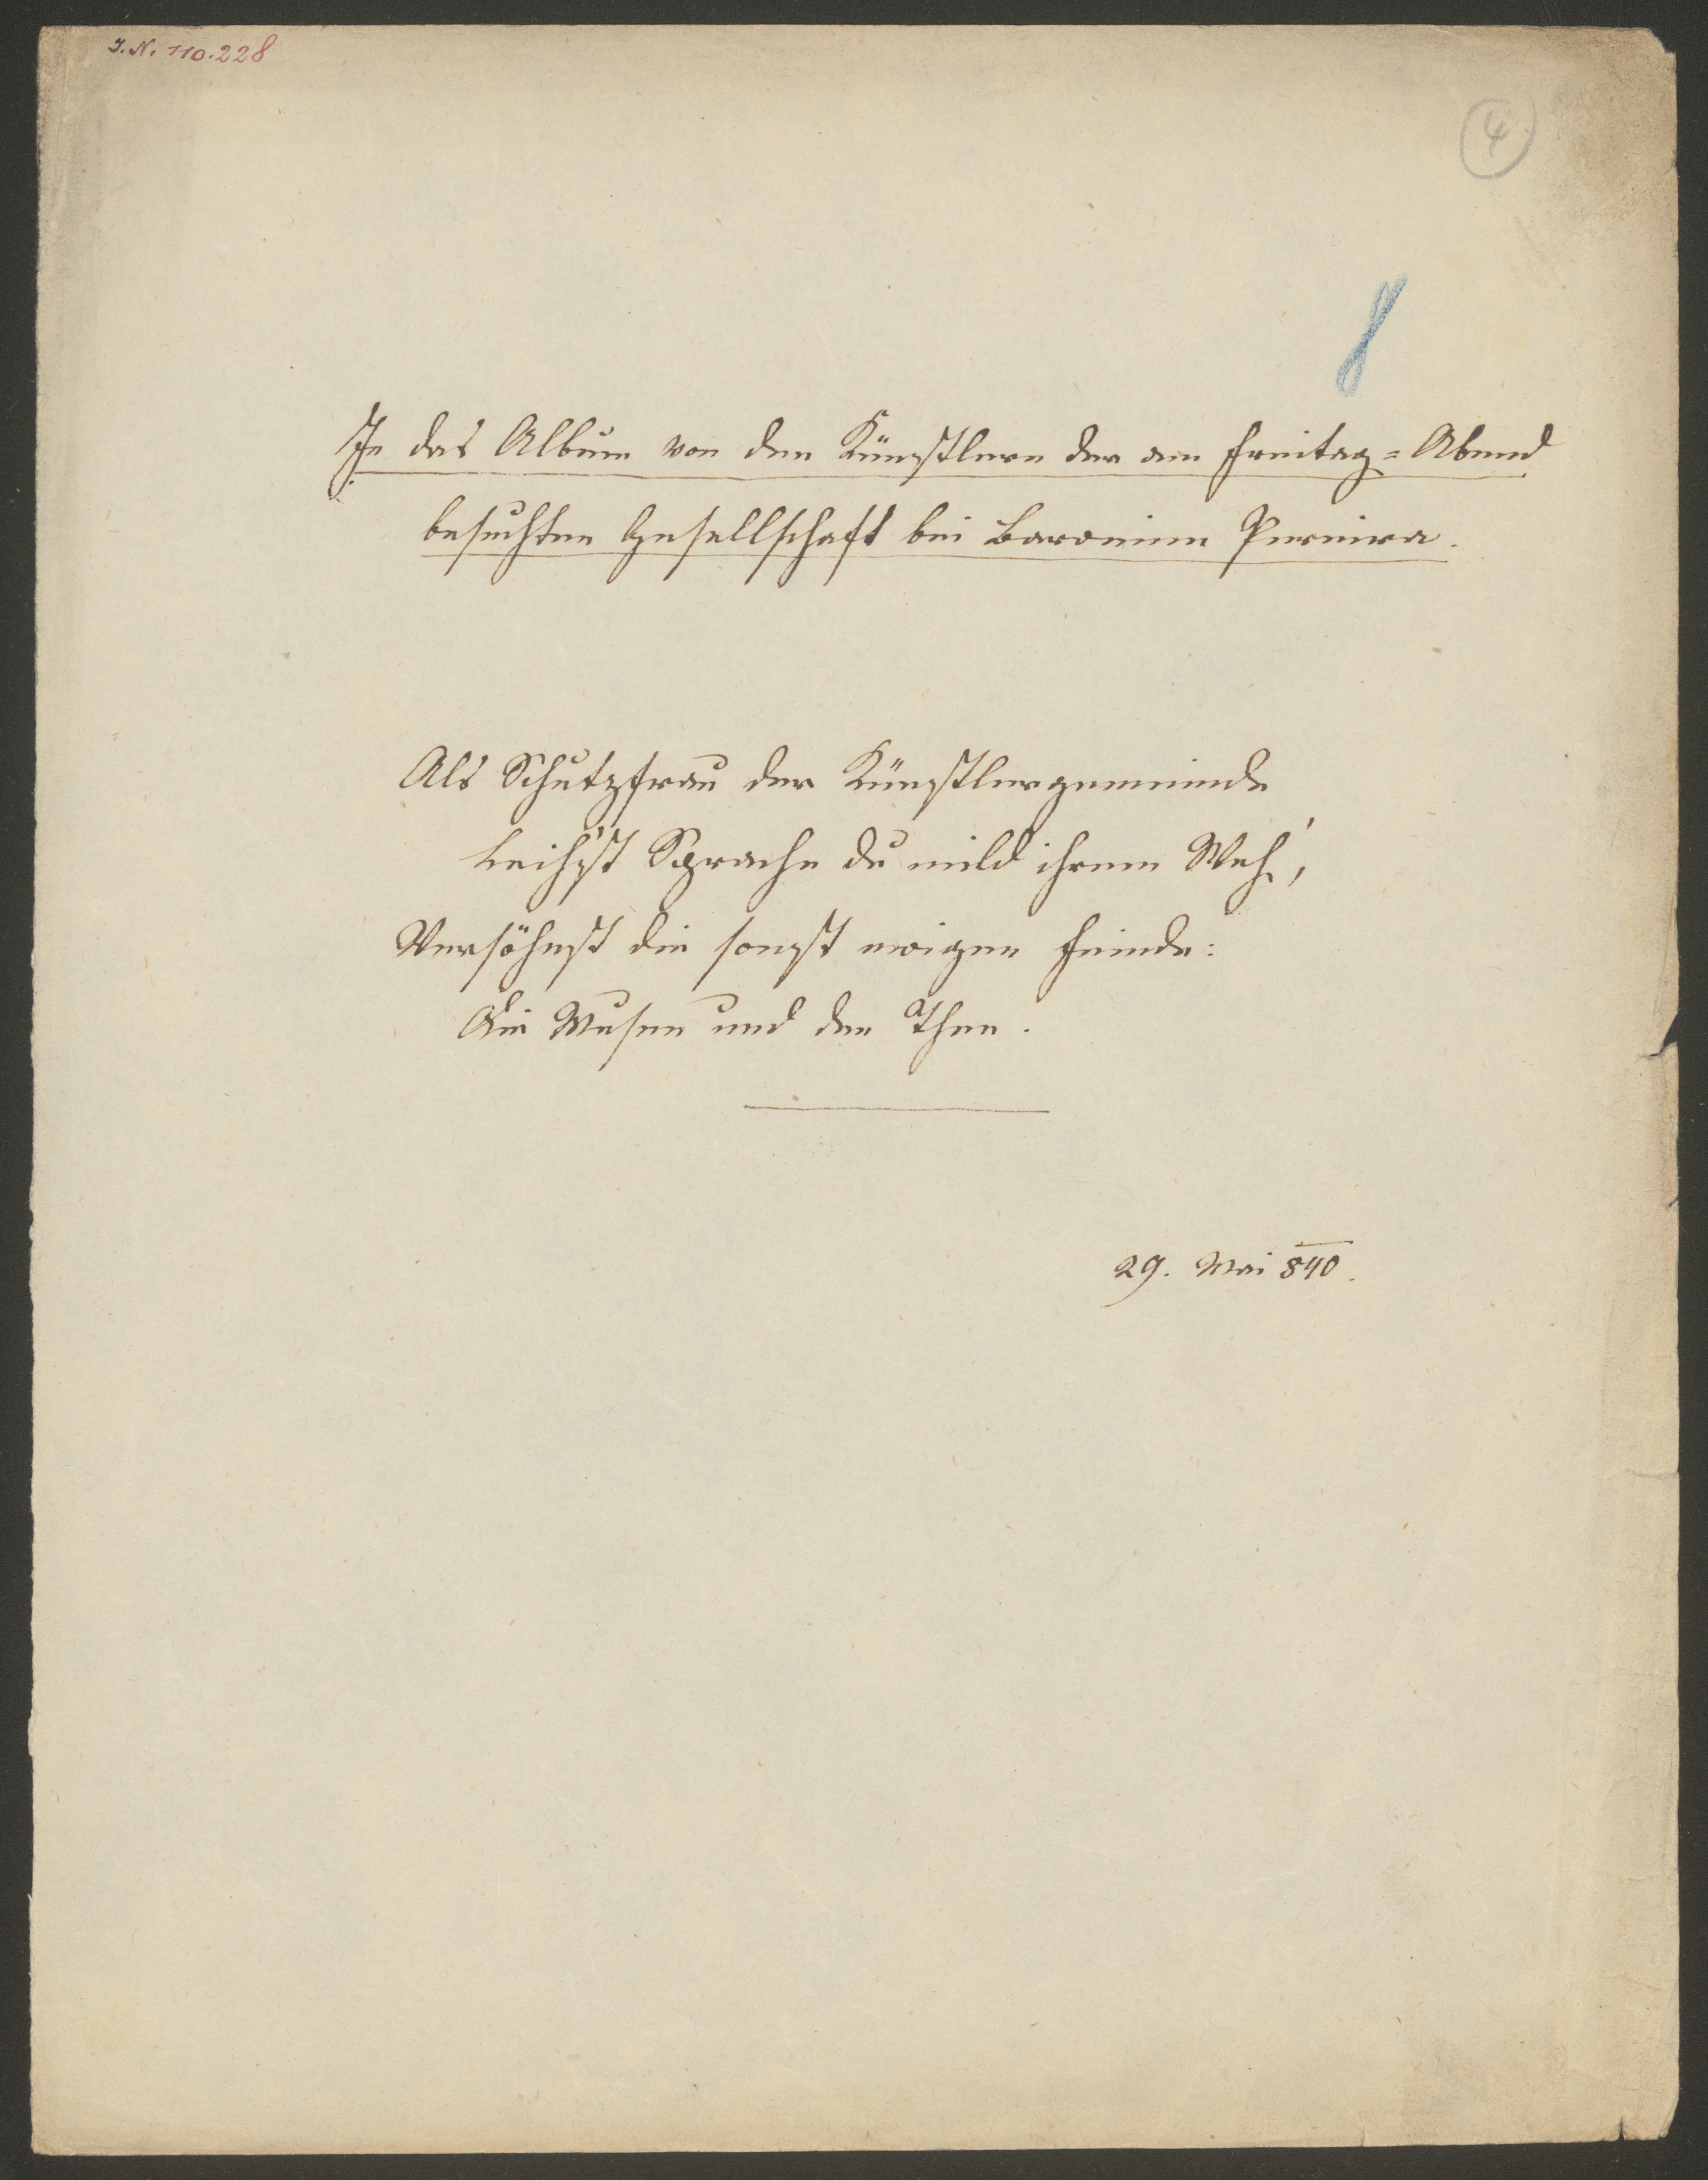 I. N. 110.228
4
8
In das Album von den Künstlern der am Freitag-Abend
besuchten Gesellschaft bei Baronin Pereira.
Als Schutzfrau der Künstlergemeinde
Leihst Sprache du mild ihrem Weh',
Versöhnst die sonst ewigen Feinde:
Die Musen und den Thee.
29. Mai 840.